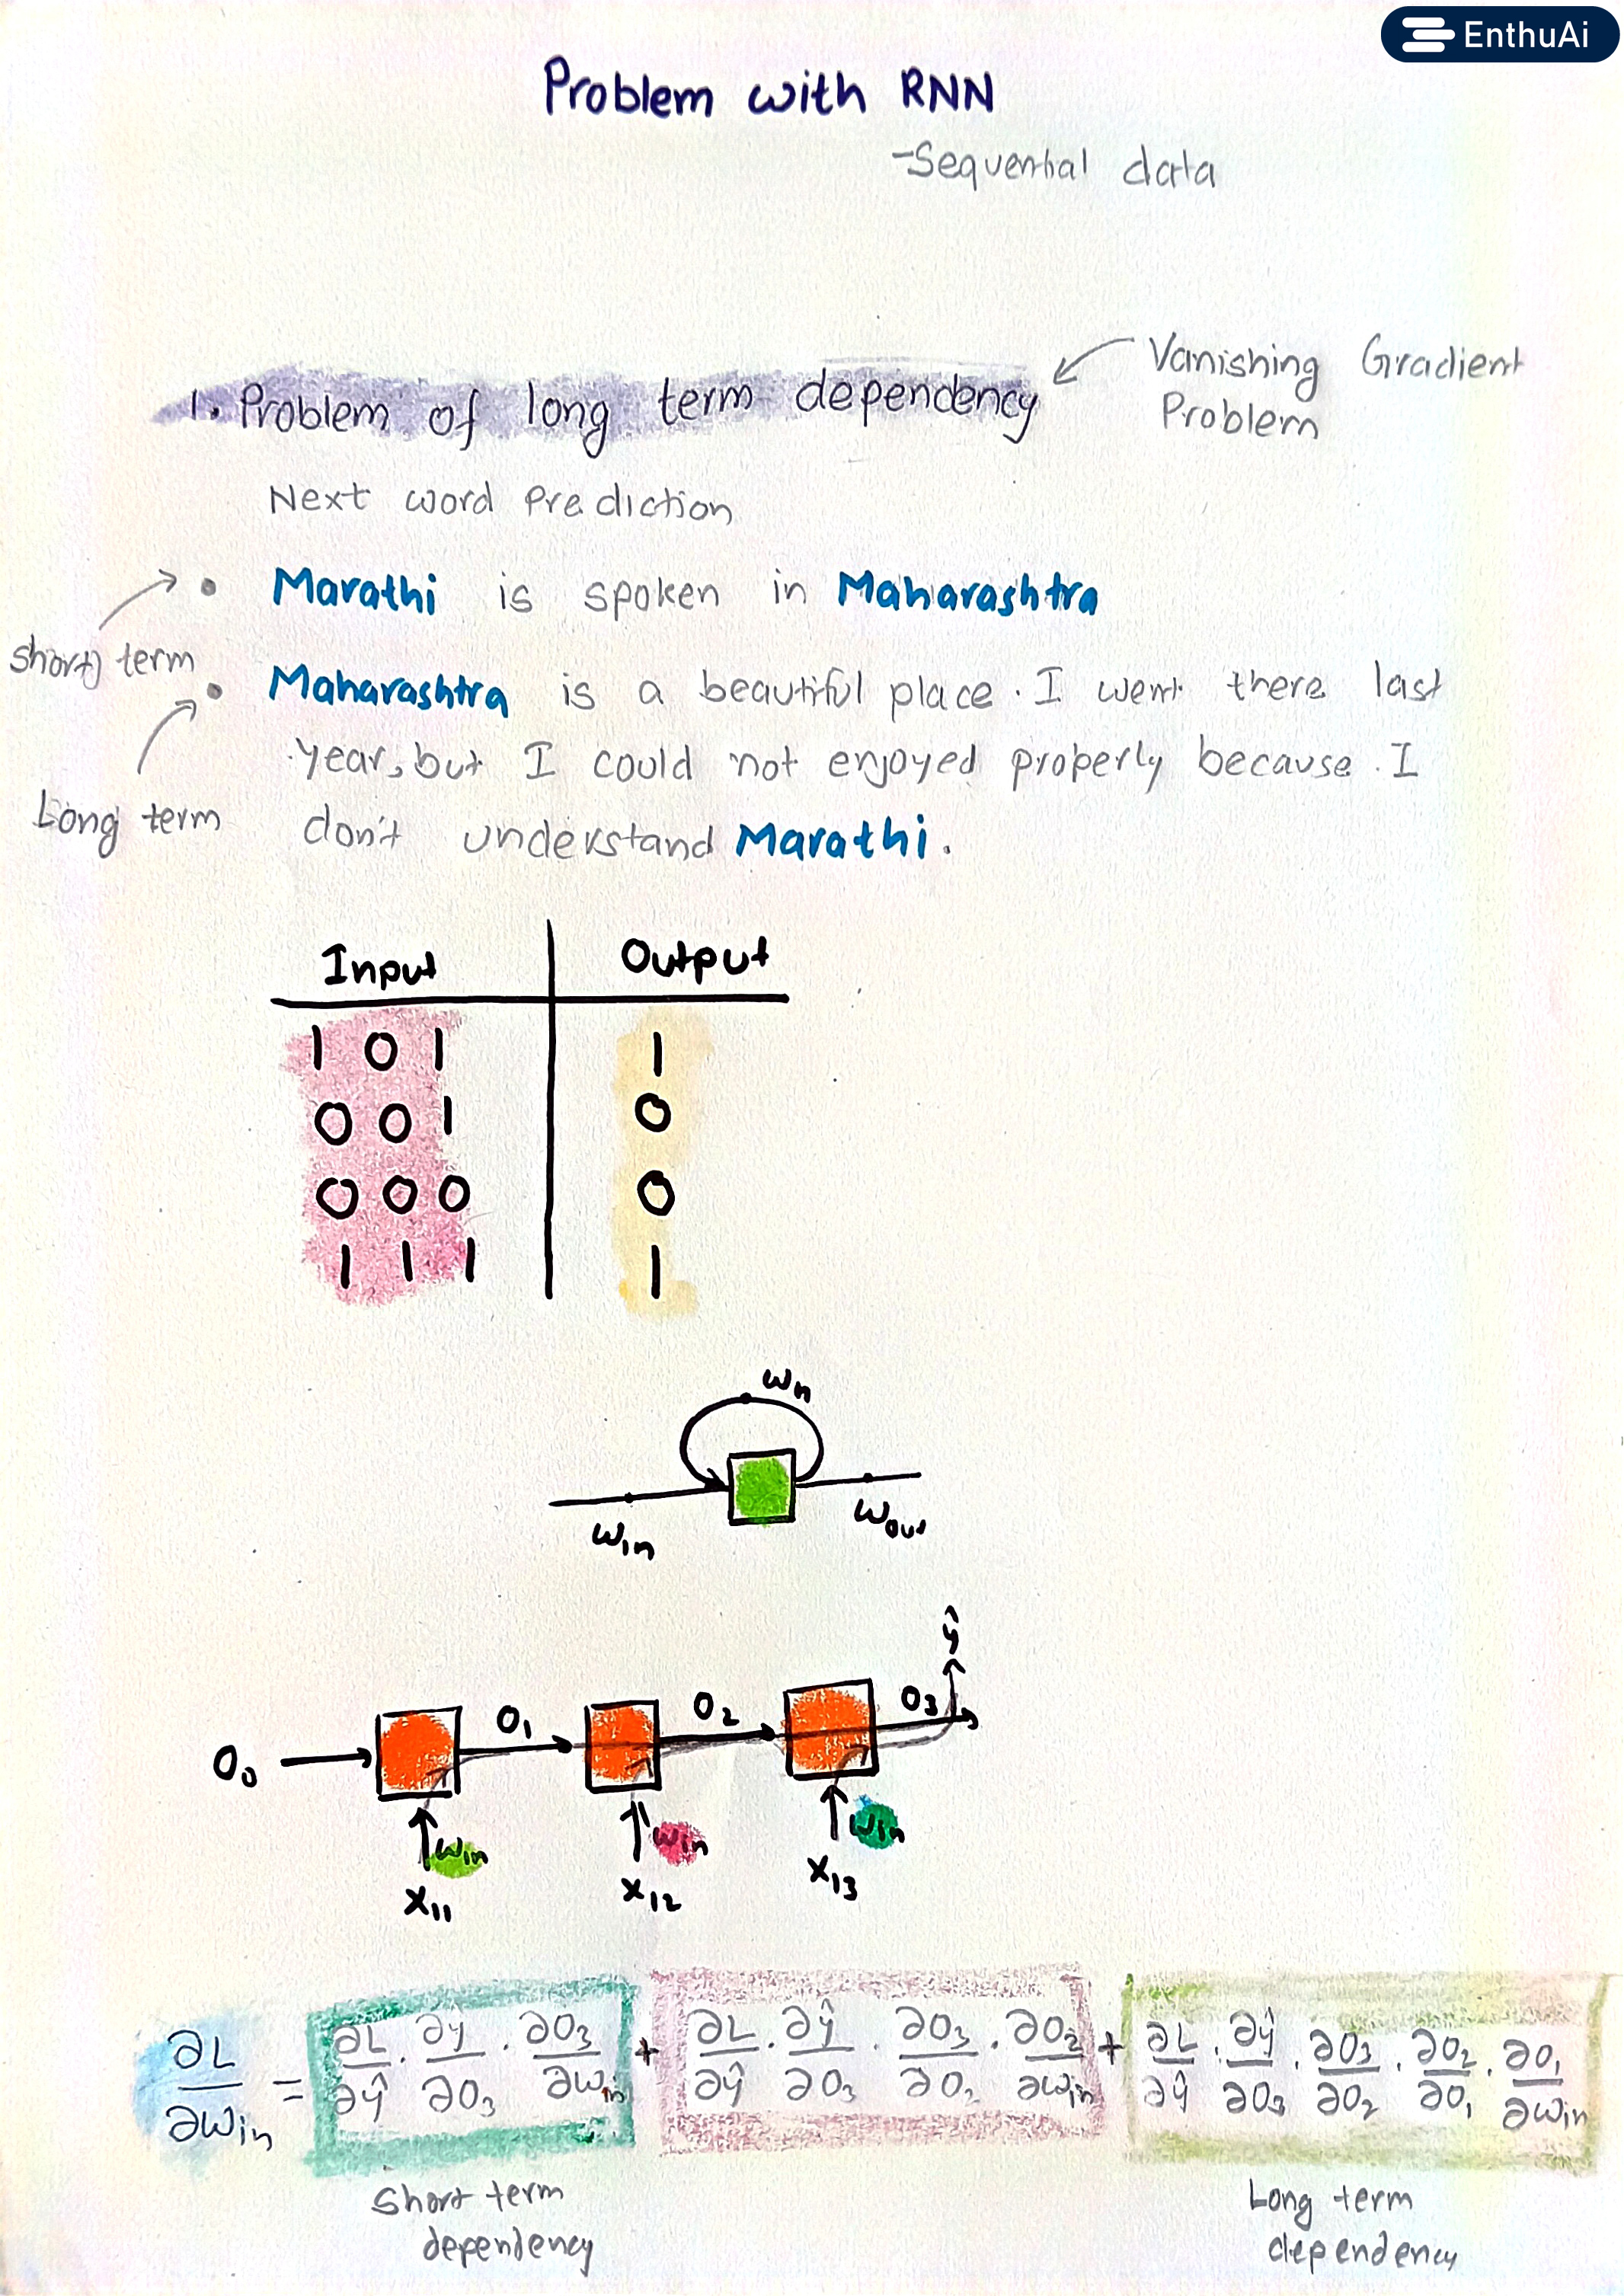 EnthuAi
Problem with RNN
-Sequential data
1. Problem of long term dependency
Vanishing Gradient
Problem
Next word Prediction
short term
• Marathi is spoken in Maharashtra
Long term
• Maharashtra is a beautiful place. I went there last
year, but I could not enjoyed properly because I
don't understand Marathi.
Input Output
1 0 1 1
0 0 1 0
0 0 0 0
1 1 1 1
wh
win wout
ŷ
O₀ O₁ O₂ O₃
win win win
x₁₁ x₁₂ x₁₃
∂L/∂win = ∂L/∂ŷ · ∂y/∂O₃ · ∂O₃/∂win + ∂L/∂ŷ · ∂ŷ/∂O₃ · ∂O₃/∂O₂ · ∂O₂/∂win + ∂L/∂ŷ · ∂ŷ/∂O₃ · ∂O₃/∂O₂ · ∂O₂/∂O₁ · ∂O₁/∂win
Short term
dependency
Long term
dependency